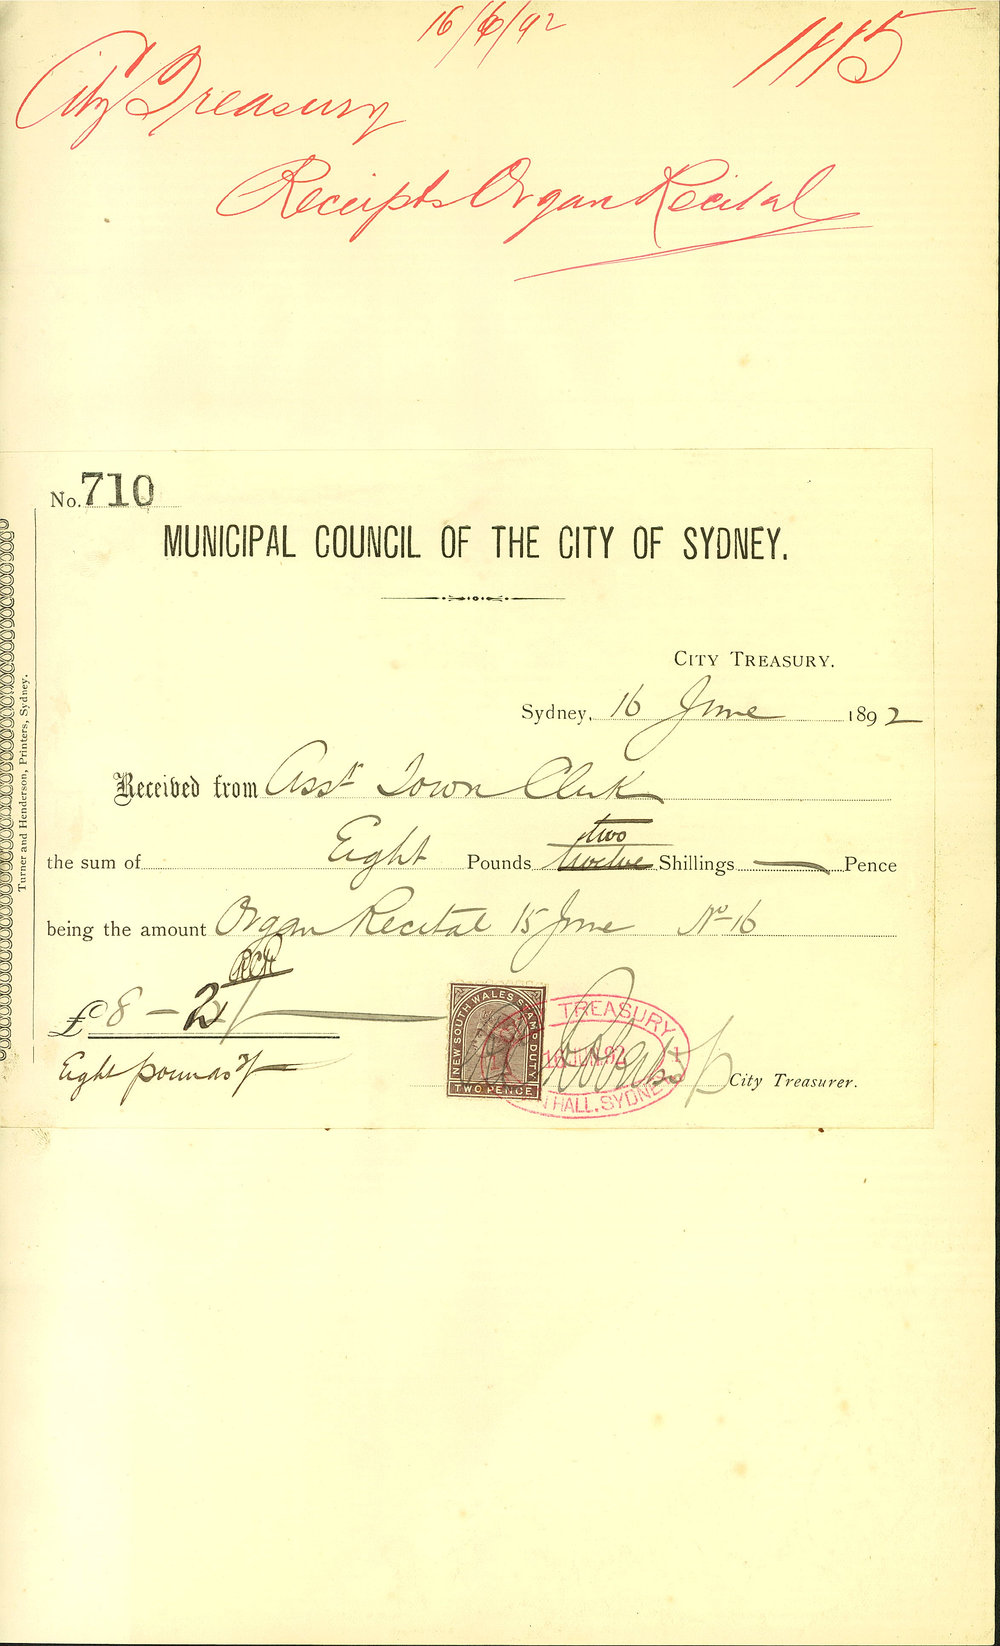 16/6/92
1115
City Treasury
Receipts Organ Recital
No. 710
MUNICIPAL COUNCIL OF THE CITY OF SYDNEY.
CITY TREASURY.
Sydney, 16 June 1892
Received from Asst Town Clerk
two
the sum of Eight Pounds twelve Shillings — Pence
being the amount Organ Recital 15 June No 16
£ 8 – 2/
Eight pounds 2/–
City Treasurer.
NEW SOUTH WALES STAMP DUTY
TWO PENCE
TREASURY
16 JUN. 92
HALL, SYDNEY
Turner and Henderson, Printers, Sydney.